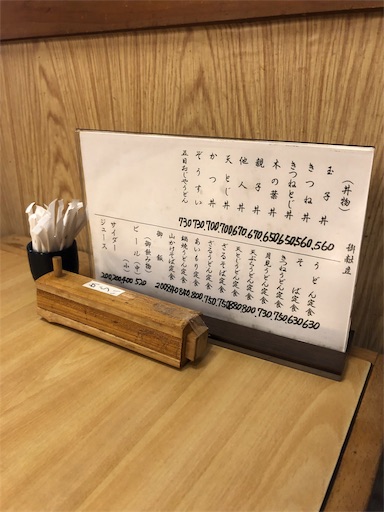 御献立
(丼物)
玉子丼 560
きつね丼 560
きつねとじ丼 650
木の葉丼 650
親子丼 670
他人丼 670
天とじ丼 700
かつ丼 700
ぞうすい 730
五目おじやうどん 730
うどん定食 630
そば定食 630
きつねうどん定食 750
月見うどん定食 730
天ぷらうどん定食 800
天とじうどん定食 880
ざるそば定食 750
ざるうどん定食 750
あいもり定食 800
鍋焼うどん定食
山かけそば定食
御飯 200
(御飲み物)
ビール(中) 520
(小) 400
サイダー 200
ジュース 200